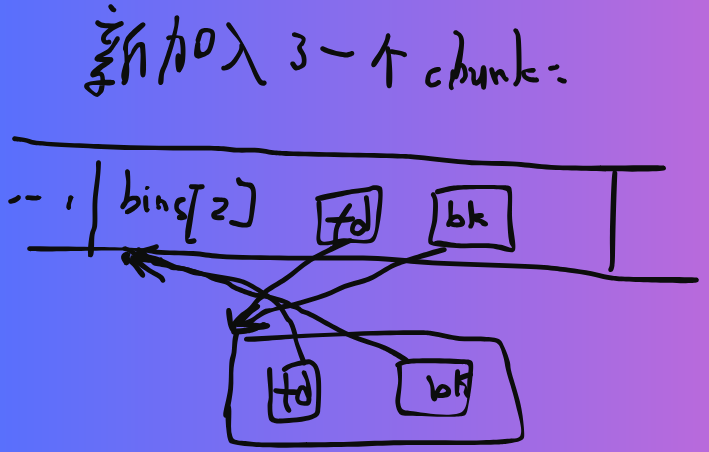 新加入了一个chunk:
... | bins[2] fd bk
fd bk